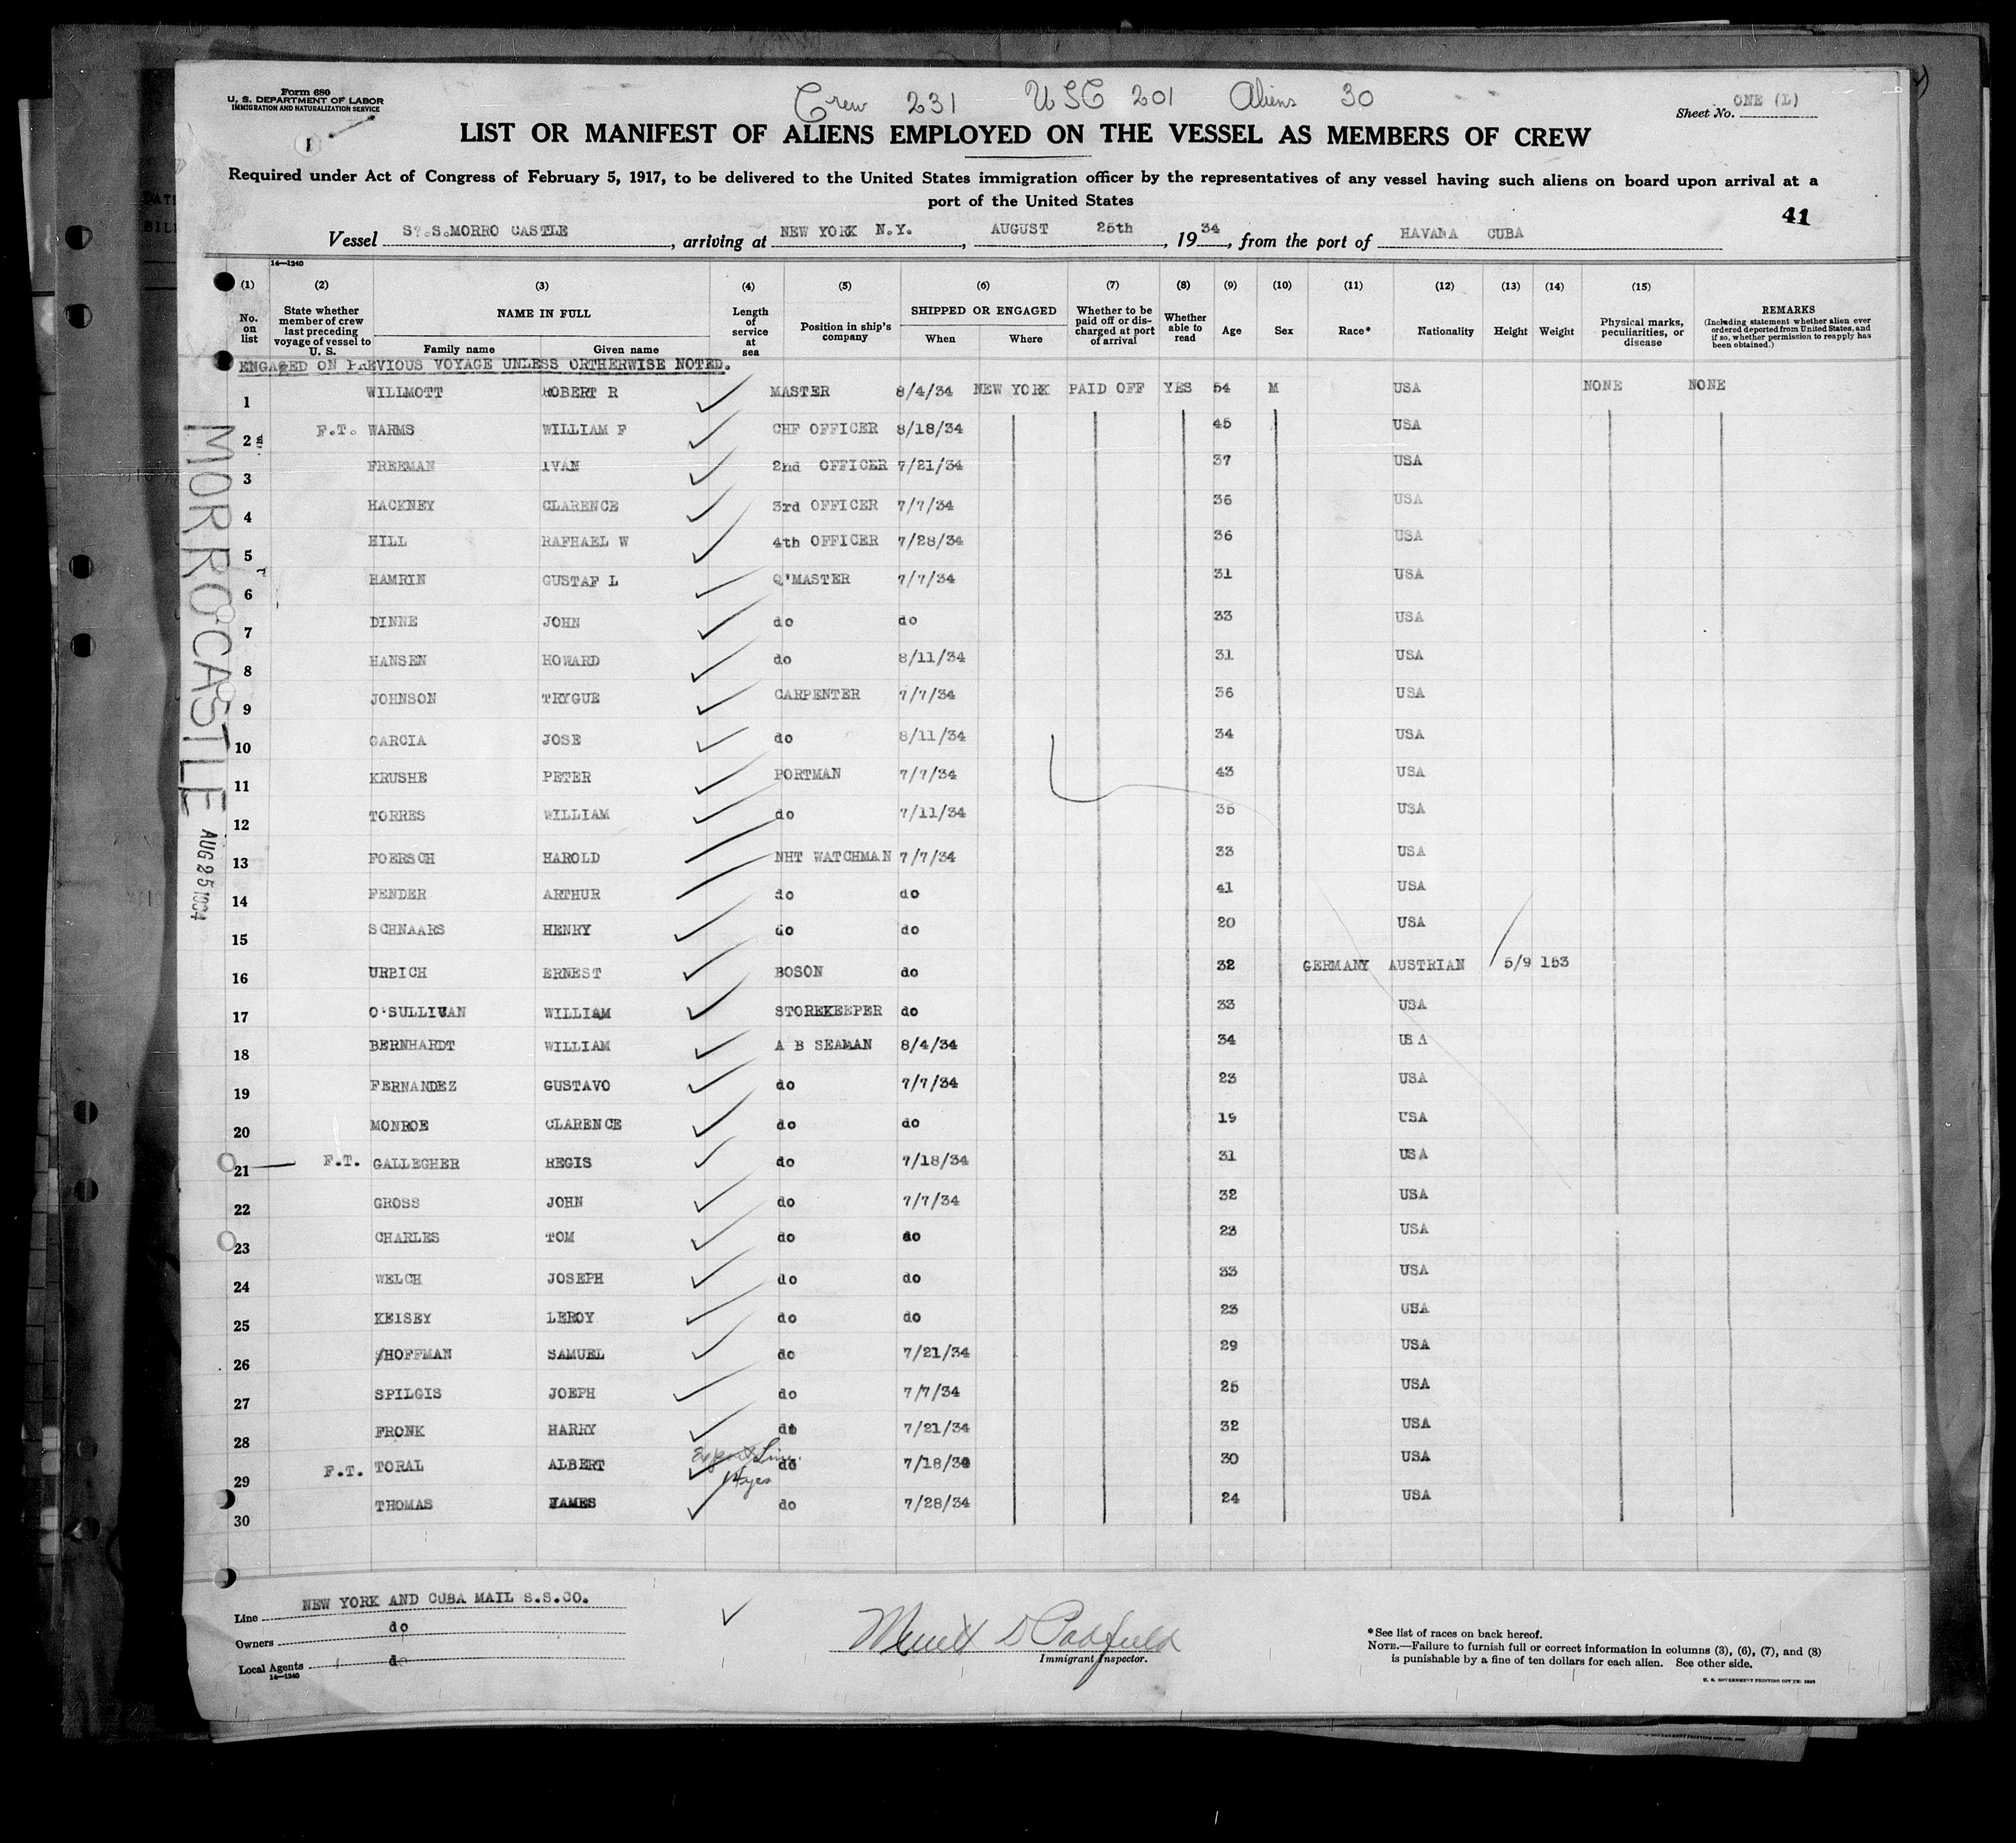 Form 680
U. S. DEPARTMENT OF LABOR
IMMIGRATION AND NATURALIZATION SERVICE
Crew 231 USC 201 Aliens 30
Sheet No. ONE (L)
LIST OR MANIFEST OF ALIENS EMPLOYED ON THE VESSEL AS MEMBERS OF CREW
Required under Act of Congress of February 5, 1917, to be delivered to the United States immigration officer by the representatives of any vessel having such aliens on board upon arrival at a
port of the United States
41
Vessel S.S.MORRO CASTLE, arriving at NEW YORK N.Y., AUGUST 25th, 1934, from the port of HAVANA CUBA
14—1240
(1) (2) (3) (4) (5) (6) (7) (8) (9) (10) (11) (12) (13) (14) (15)
No. on list
State whether member of crew last preceding voyage of vessel to U. S.
NAME IN FULL
Family name Given name
Length of service at sea
Position in ship's company
SHIPPED OR ENGAGED
When Where
Whether to be paid off or discharged at port of arrival
Whether able to read
Age
Sex
Race*
Nationality
Height
Weight
Physical marks, peculiarities, or disease
REMARKS
(Including statement whether alien ever ordered deported from United States, and if so, whether permission to reapply has been obtained.)
ENGAGED ON PREVIOUS VOYAGE UNLESS ORTHERWISE NOTED.
1 WILLMOTT ROBERT R MASTER 8/4/34 NEW YORK PAID OFF YES 54 M USA NONE NONE
2 F.T. WARMS WILLIAM F CHF OFFICER 8/18/34 45 USA
3 FREEMAN IVAN 2nd OFFICER 7/21/34 37 USA
4 HACKNEY CLARENCE 3rd OFFICER 7/7/34 36 USA
5 HILL RAFHAEL W 4th OFFICER 7/28/34 36 USA
6 HAMRIN GUSTAF L Q'MASTER 7/7/34 31 USA
7 DINNE JOHN do do 33 USA
8 HANSEN HOWARD do 8/11/34 31 USA
9 JOHNSON TRYGUE CARPENTER 7/7/34 36 USA
10 GARCIA JOSE do 8/11/34 34 USA
11 KRUSHE PETER PORTMAN 7/7/34 43 USA
12 TORRES WILLIAM do 7/11/34 35 USA
13 FOERSCH HAROLD NHT WATCHMAN 7/7/34 33 USA
14 FENDER ARTHUR do do 41 USA
15 SCHNAARS HENRY do do 20 USA
16 URBICH ERNEST BOSON do 32 GERMANY AUSTRIAN 5/9 153
17 O'SULLIVAN WILLIAM STOREKEEPER do 33 USA
18 BERNHARDT WILLIAM A B SEAMAN 8/4/34 34 USA
19 FERNANDEZ GUSTAVO do 7/7/34 23 USA
20 MONROE CLARENCE do do 19 USA
21 F.T. GALLEGHER REGIS do 7/18/34 31 USA
22 GROSS JOHN do 7/7/34 32 USA
23 CHARLES TOM do do 23 USA
24 WELCH JOSEPH do do 33 USA
25 KEISEY LEROY do do 23 USA
26 HOFFMAN SAMUEL do 7/21/34 29 USA
27 SPILGIS JOEPH do 7/7/34 25 USA
28 FRONK HARRY do 7/21/34 32 USA
29 F.T. TORAL ALBERT do 7/18/34 30 USA
30 THOMAS JAMES do 7/28/34 24 USA
MORRO CASTLE
AUG 25 1934
Line NEW YORK AND CUBA MAIL S.S.CO.
Owners do
Local Agents do
14—1240
Immigrant Inspector.
*See list of races on back hereof.
NOTE.—Failure to furnish full or correct information in columns (3), (6), (7), and (8)
is punishable by a fine of ten dollars for each alien. See other side.